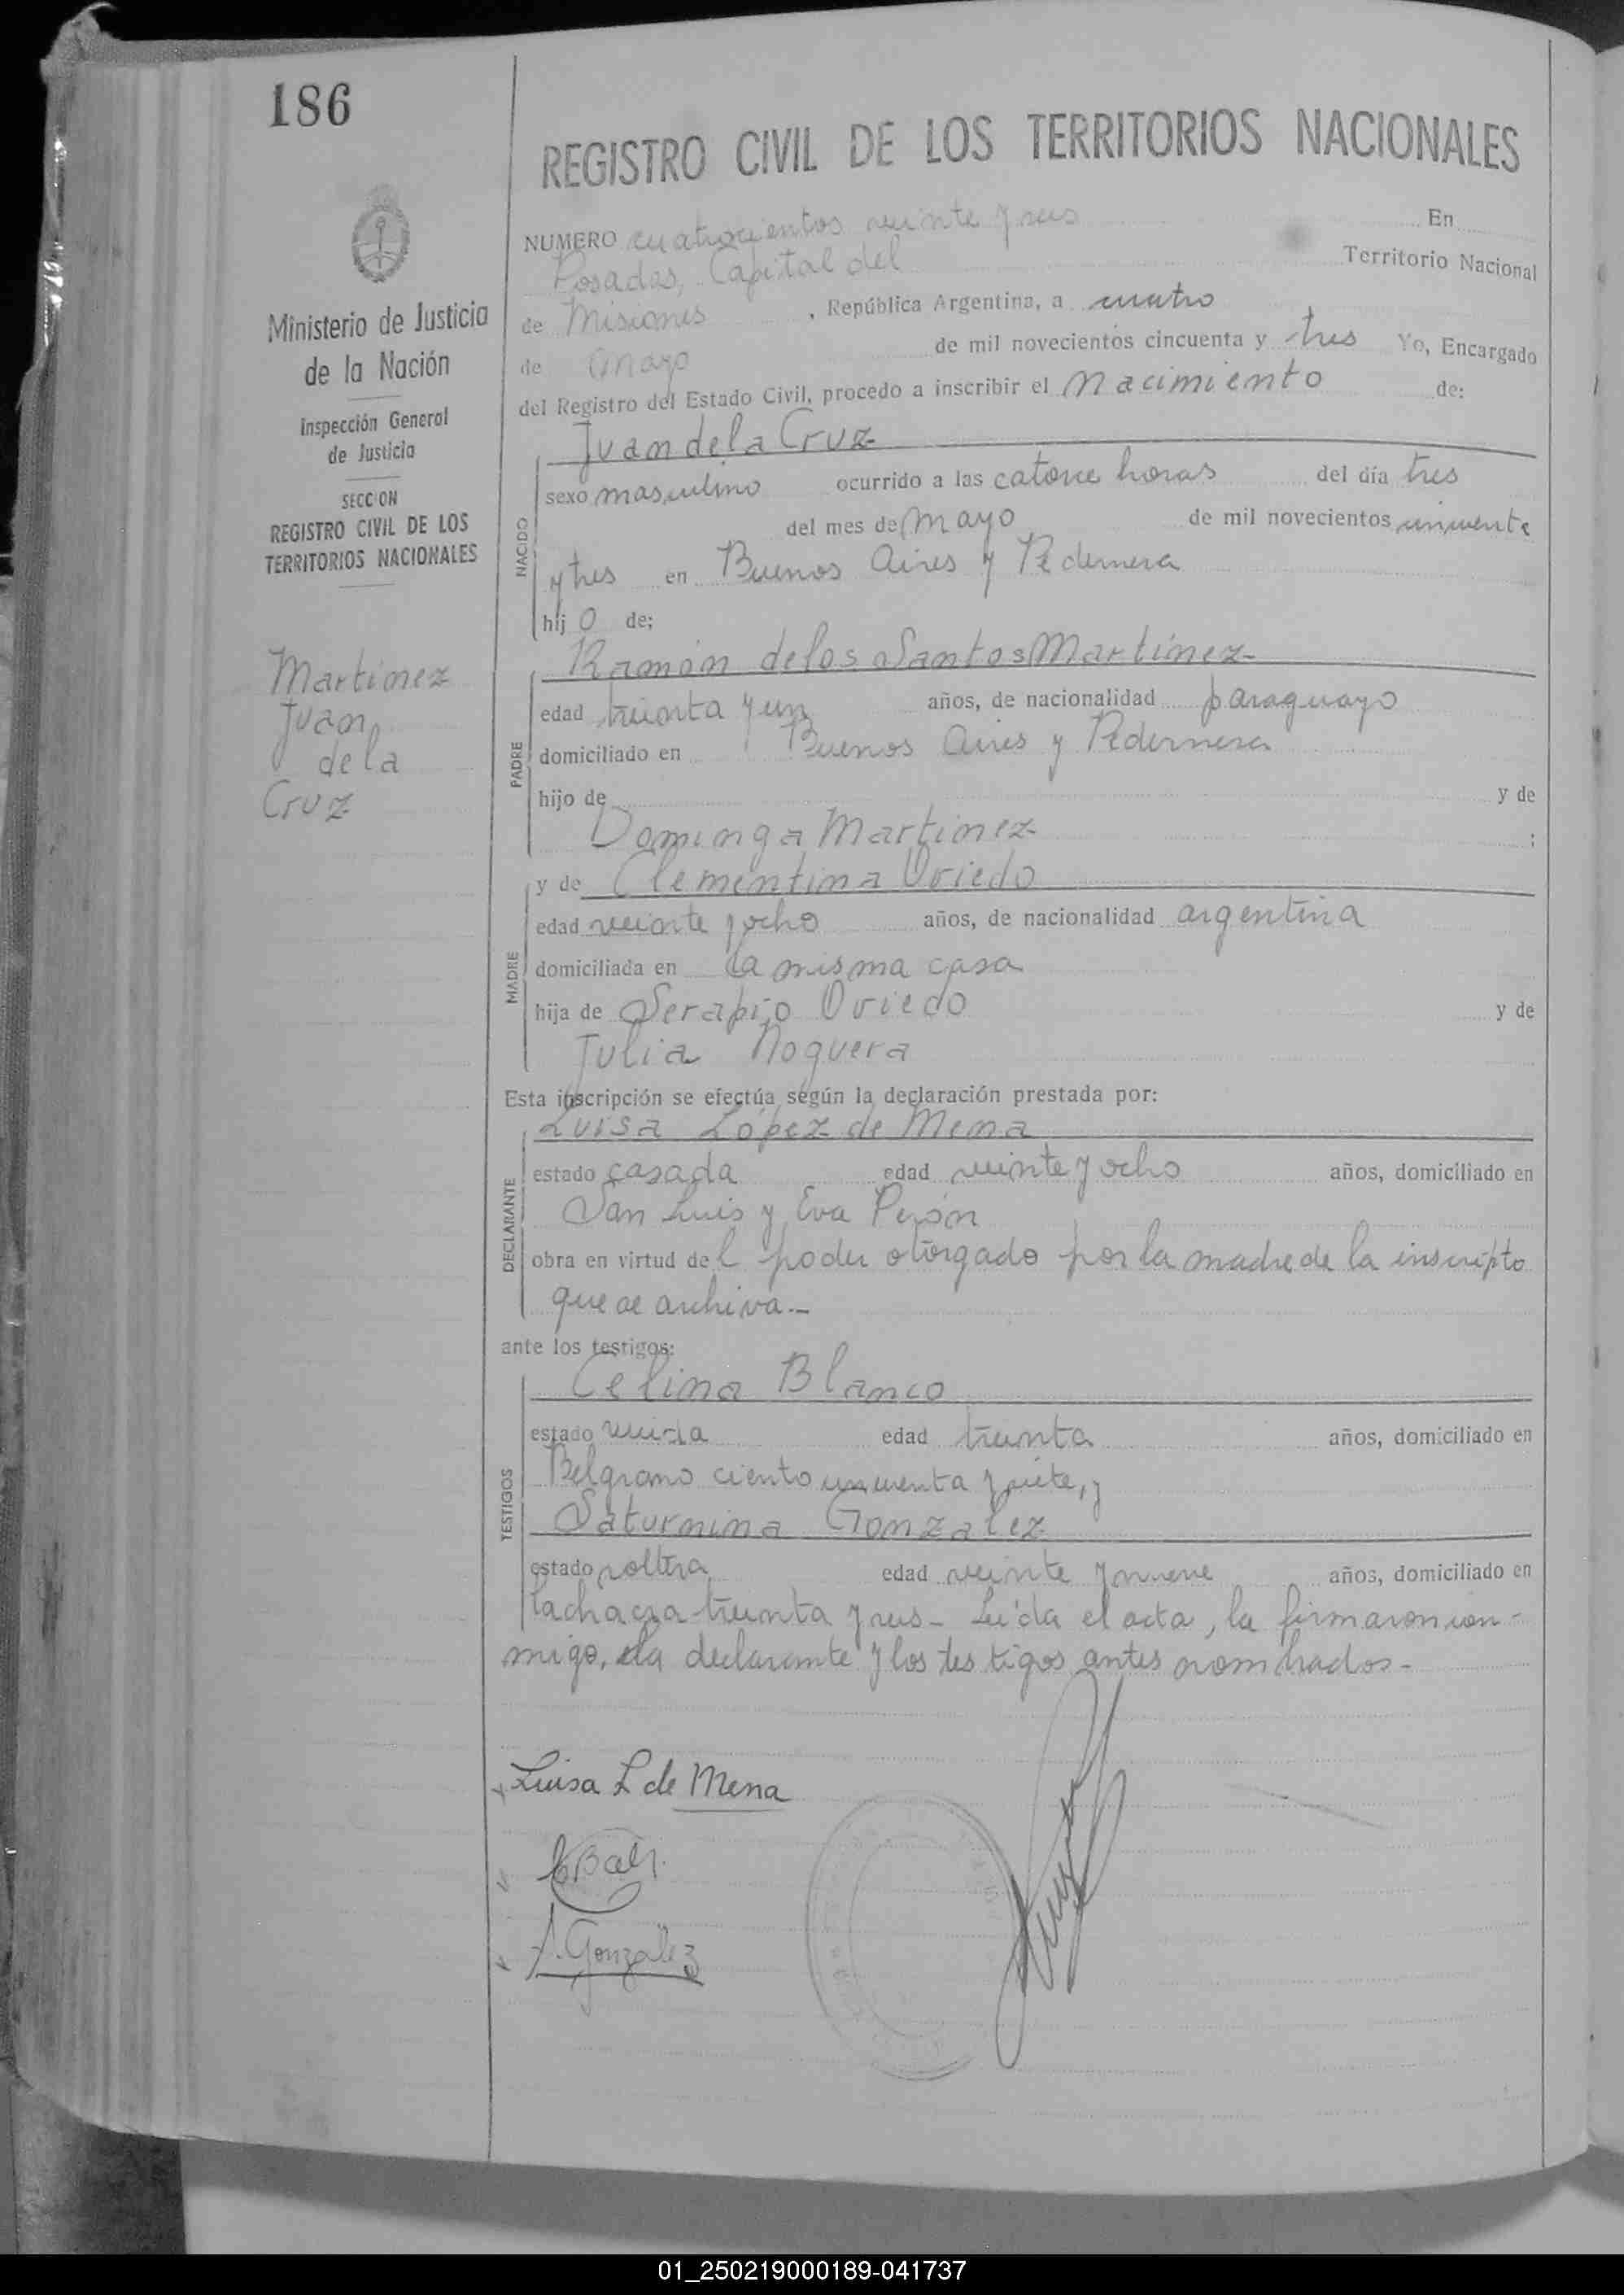 186
REGISTRO CIVIL DE LOS TERRITORIOS NACIONALES
NUMERO cuatrocientos veinte y seis En
Posadas, Capital del Territorio Nacional
de Misiones , República Argentina, a cuatro
de mayo de mil novecientos cincuenta y tres Yo, Encargado
del Registro del Estado Civil, procedo a inscribir el nacimiento de:
Juan de la Cruz
NACIDO
sexo masculino ocurrido a las catorce horas del día tres
del mes de mayo de mil novecientos cincuenta
y tres en Buenos Aires y Pedernera
hij o de;
Ramón de los Santos Martinez
PADRE
edad treinta y un años, de nacionalidad paraguayo
domiciliado en Buenos Aires y Pedernera
hijo de y de
Dominga Martinez ;
y de Clementina Oviedo
MADRE
edad veinte y ocho años, de nacionalidad argentina
domiciliada en la misma casa
hija de Serapio Oviedo y de
Julia Noguera
Esta inscripción se efectúa según la declaración prestada por:
Luisa López de Mena
DECLARANTE
estado casada edad veinte y ocho años, domiciliado en
San Luis y Eva Perón
obra en virtud del poder otorgado por la madre de la inscripto
que se archiva.-
ante los testigos:
Celina Blanco
TESTIGOS
estado viuda edad treinta años, domiciliado en
Belgrano ciento cincuenta y siete, y
Saturnina Gonzalez
estado soltera edad veinte y nueve años, domiciliado en
la chacra treinta y seis - Leída el acta, la firmaron con-
migo, la declarante y los testigos antes nombrados -
Luisa L de Mena
A. Gonzalez
Ministerio de Justicia
de la Nación
Inspección General
de Justicia
SECCION
REGISTRO CIVIL DE LOS
TERRITORIOS NACIONALES
Martinez
Juan
de la
Cruz
01_250219000189-041737